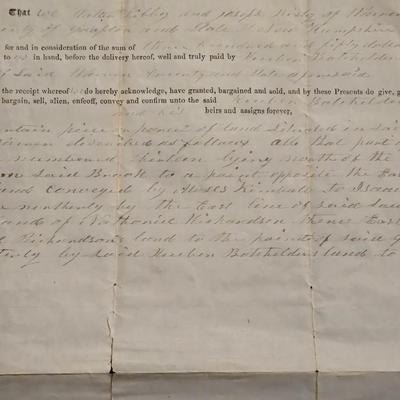 That we Walter Libbey and Joseph
County of Grafton and State of New Hampshire
for and in consideration of the sum of three hundred and fifty dollars
to us in hand, before the delivery hereof, well and truly paid by Reuben Batchelder
of said Warren County and State aforesaid
the receipt whereof we do hereby acknowledge, have granted, bargained and sold, and by these Presents do give, g
bargain, sell, alien, enfeoff, convey and confirm unto the said Reuben Batchelder
and his heirs and assigns forever,
certain piece or parcel of land situated in said
Warren described as follows all that part of
numbered lying north of the
on said Brook to a point opposite the Ea
land conveyed by Moses Kimball to Isaac
northerly by the East line of said
land of Nathaniel Richardson thence East
Richardson's land to the of said
by said Reuben Batchelders land to